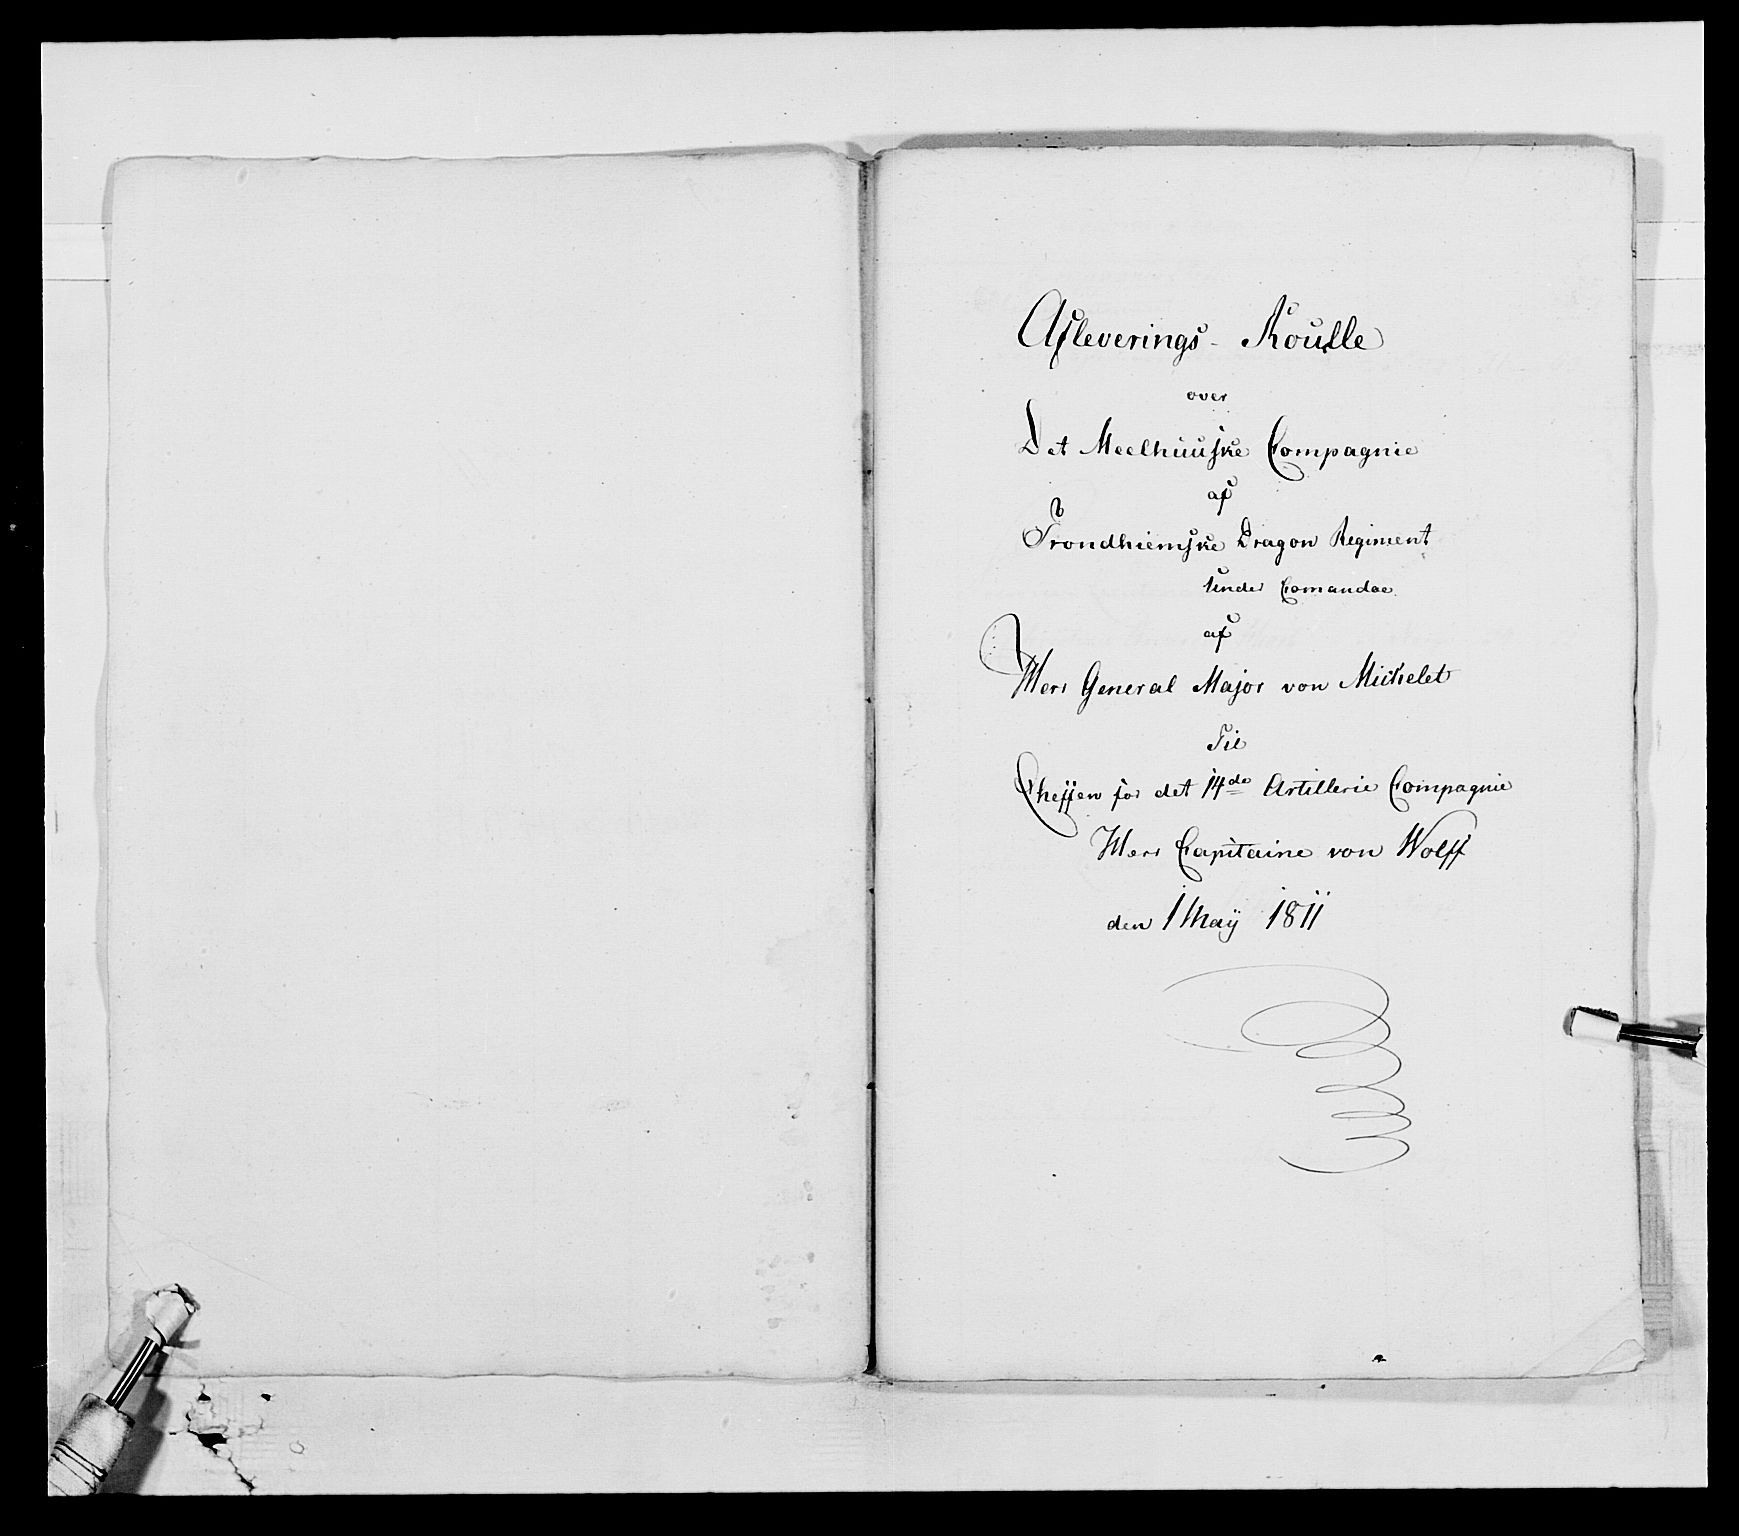 Afleverings-Roulle
over
Det Meelhuuske Compagnie
af
Trondhiemske Dragon Regiment
under Comandoe
af
Herr General Major von Michelet
Til
Cheffen for det 14de Artillerie Compagnie
Herr Capitaine von Wolff
den 1 Maÿ 1811